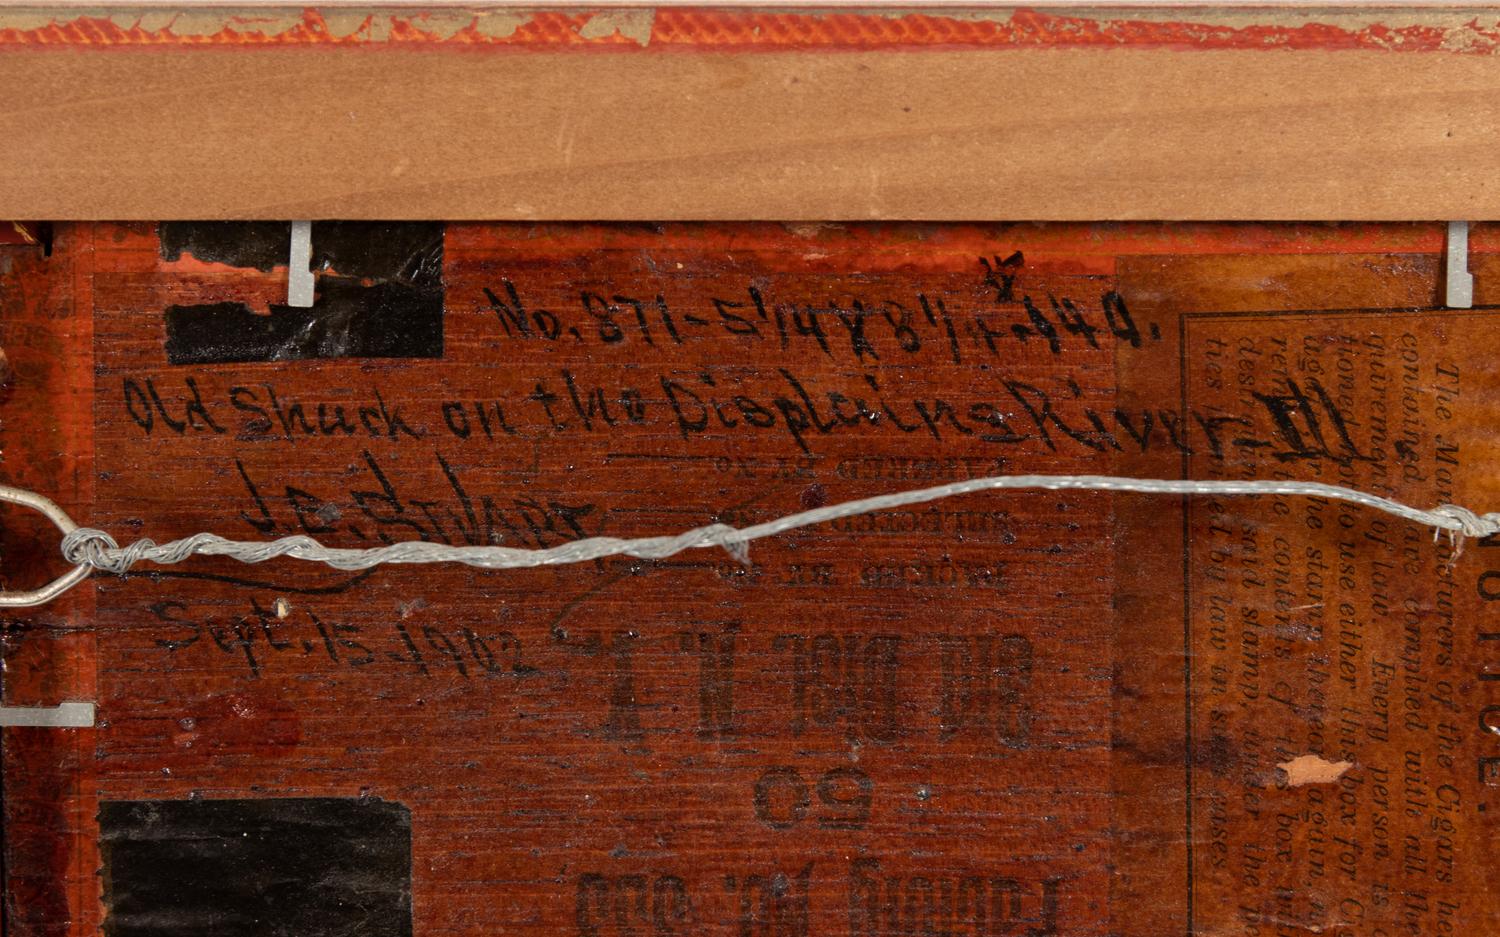 No. 871-5 1/4 X 8 1/4-140.
Old Shack on the Displaings River Ill.
Sept. 15-1902
PACKED BY No.
3rd Dist. N. Y.
50
Factory No.
NOTICE.
The Manufacturers of the Cigars he
contained have complied with all the
quirements of law. Every person is c
tioned not to use either this box for C
igars again, or the stamp thereon again, n
remove the contents of this box wit
destroying said stamp, under the pe
ties provided by law in such cases.